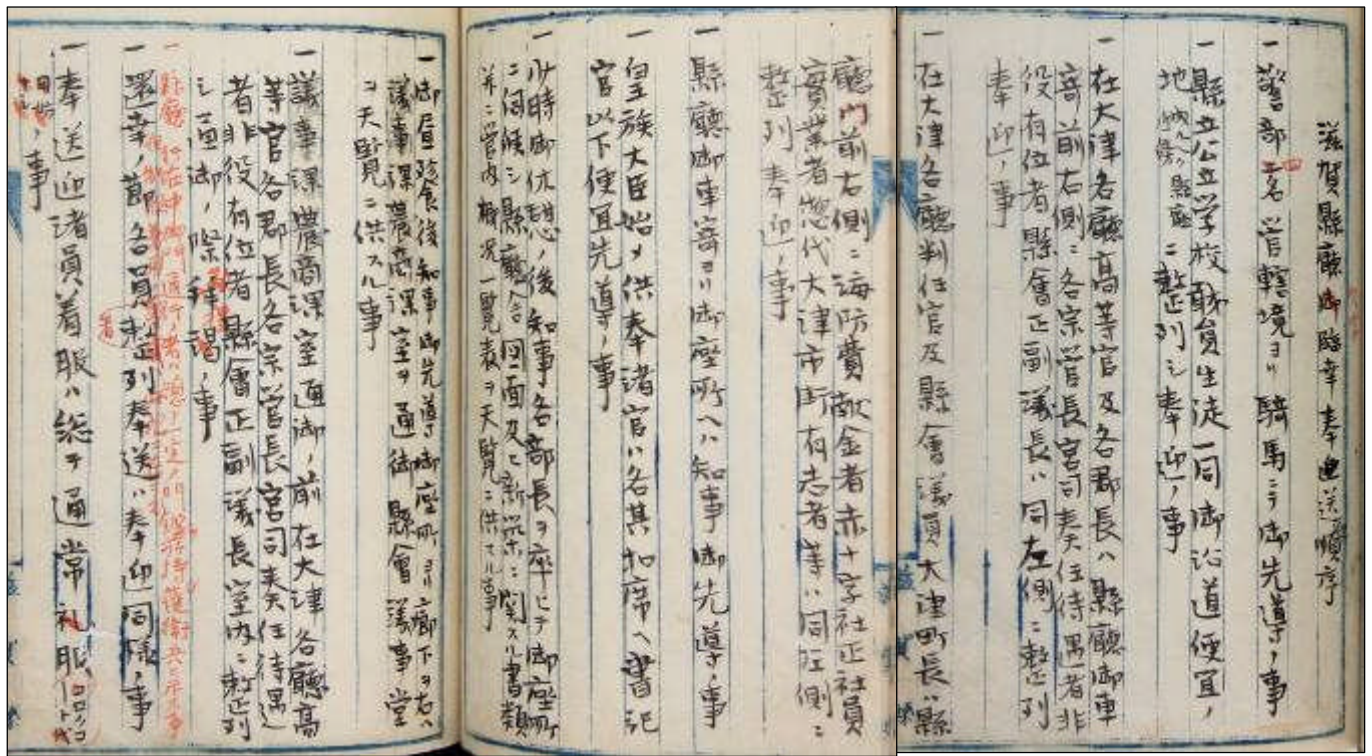 滋賀縣廳御臨幸奉迎送順序
一警部四名管轄境ヨリ騎馬ニテ御先導ノ事
一縣立公立学校職員生徒一同御沿道便宜ノ
地ニ整列シ奉迎ノ事
一在大津各廳高等官及各郡長ハ縣廳御車
寄前右側ニ各宗管長宮司奏任待遇者非
役有位者縣會正副議長ハ同左側ニ整列
奉迎ノ事
一在大津各廳判任官及縣會議員大津町長ハ縣
廳門前右側ニ海防費献金者赤十字社正社員
實業者惣代大津市街有志者等ハ同左側ニ
整列奉迎ノ事
一縣廳御車寄ヨリ御座所ヘハ知事御先導ノ事
一皇族大臣始メ供奉諸官ハ各其扣席ヘ書記
官以下便宜先導ノ事
一少時御休憩ノ後知事各部長ヲ率ヒテ御座所
ニ伺候シ縣廳舎図面及ヒ新築ニ関スル書類
并ニ管内概況一覧表ヲ天覧ニ供スル事
一御昼餐後知事御先導御座所ヨリ廊下ヲ右ヘ
議事課農商課室ヲ通御縣會議事堂
ヲ天覧ニ供スル事
一議事課農商課室通御ノ前在大津各廳高
等官各郡長各宗管長宮司奏任待遇
者非役有位者縣會正副議長室内ニ整列
シ通御ノ際拝謁ノ事
一還幸ノ節各員整列奉送ハ奉迎同様ノ事
一奉送迎諸員着服ハ総テ通常礼服
ノ事